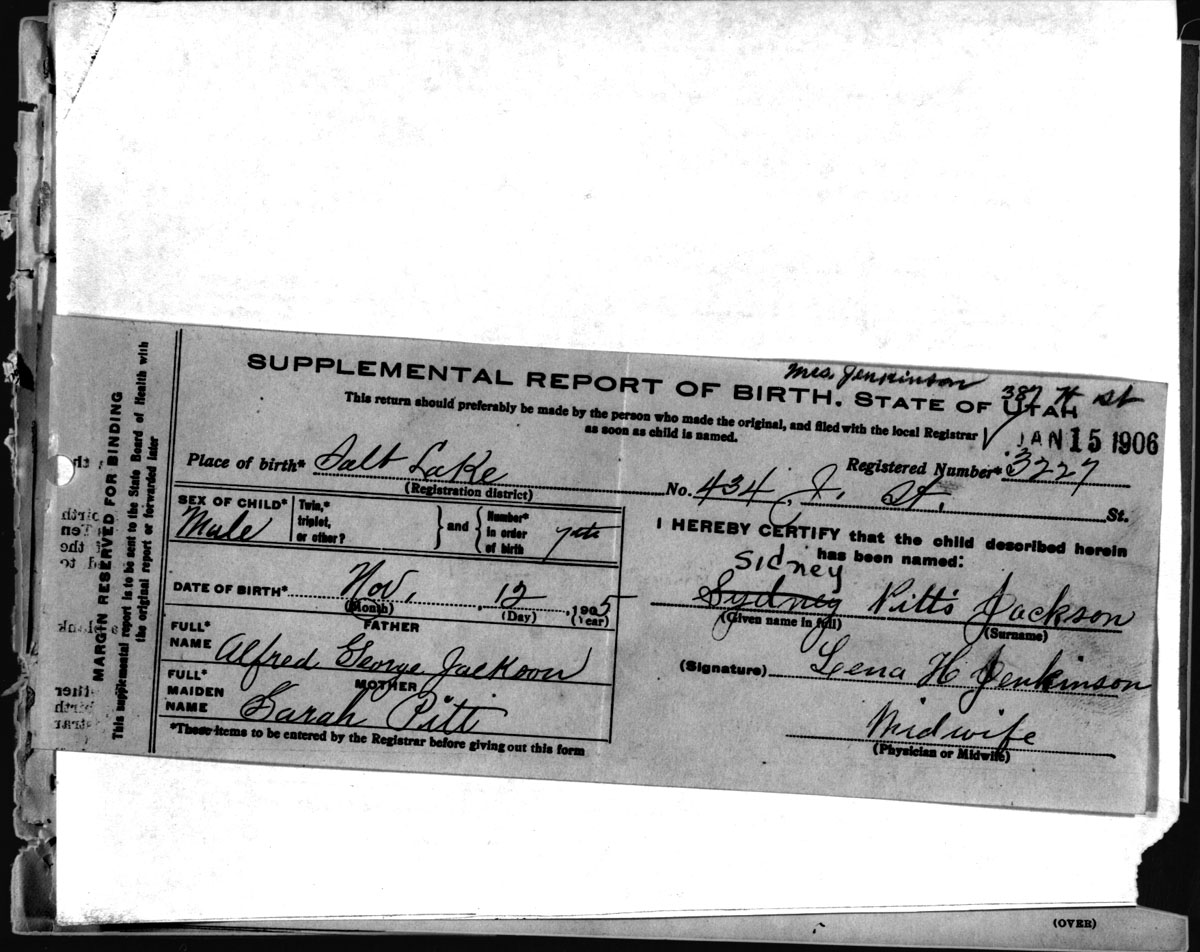 Mrs. Jenkinson 387 H St
SUPPLEMENTAL REPORT OF BIRTH. STATE OF UTAH
This return should preferably be made by the person who made the original, and filed with the local Registrar
as soon as child is named.
JAN 15 1906
Registered Number* 3227
Place of birth* Salt Lake No. 434, J. St. St.
(Registration district)
SEX OF CHILD* Male
Twin,*
triplet,
or other?
} and {
Number*
in order
of birth
7th
DATE OF BIRTH* Nov. 12, 1905
(Month) (Day) (Year)
FATHER
FULL*
NAME Alfred George Jackson
MOTHER
FULL*
MAIDEN
NAME Sarah Pitt
*These items to be entered by the Registrar before giving out this form
I HEREBY CERTIFY that the child described herein
has been named:
Sidney
Sydney Pitts Jackson
(Given name in full) (Surname)
(Signature) Lena H Jenkinson
Midwife
(Physician or Midwife)
MARGIN RESERVED FOR BINDING
This supplemental report is to be sent to the State Board of Health with
the original report or forwarded later
(OVER)